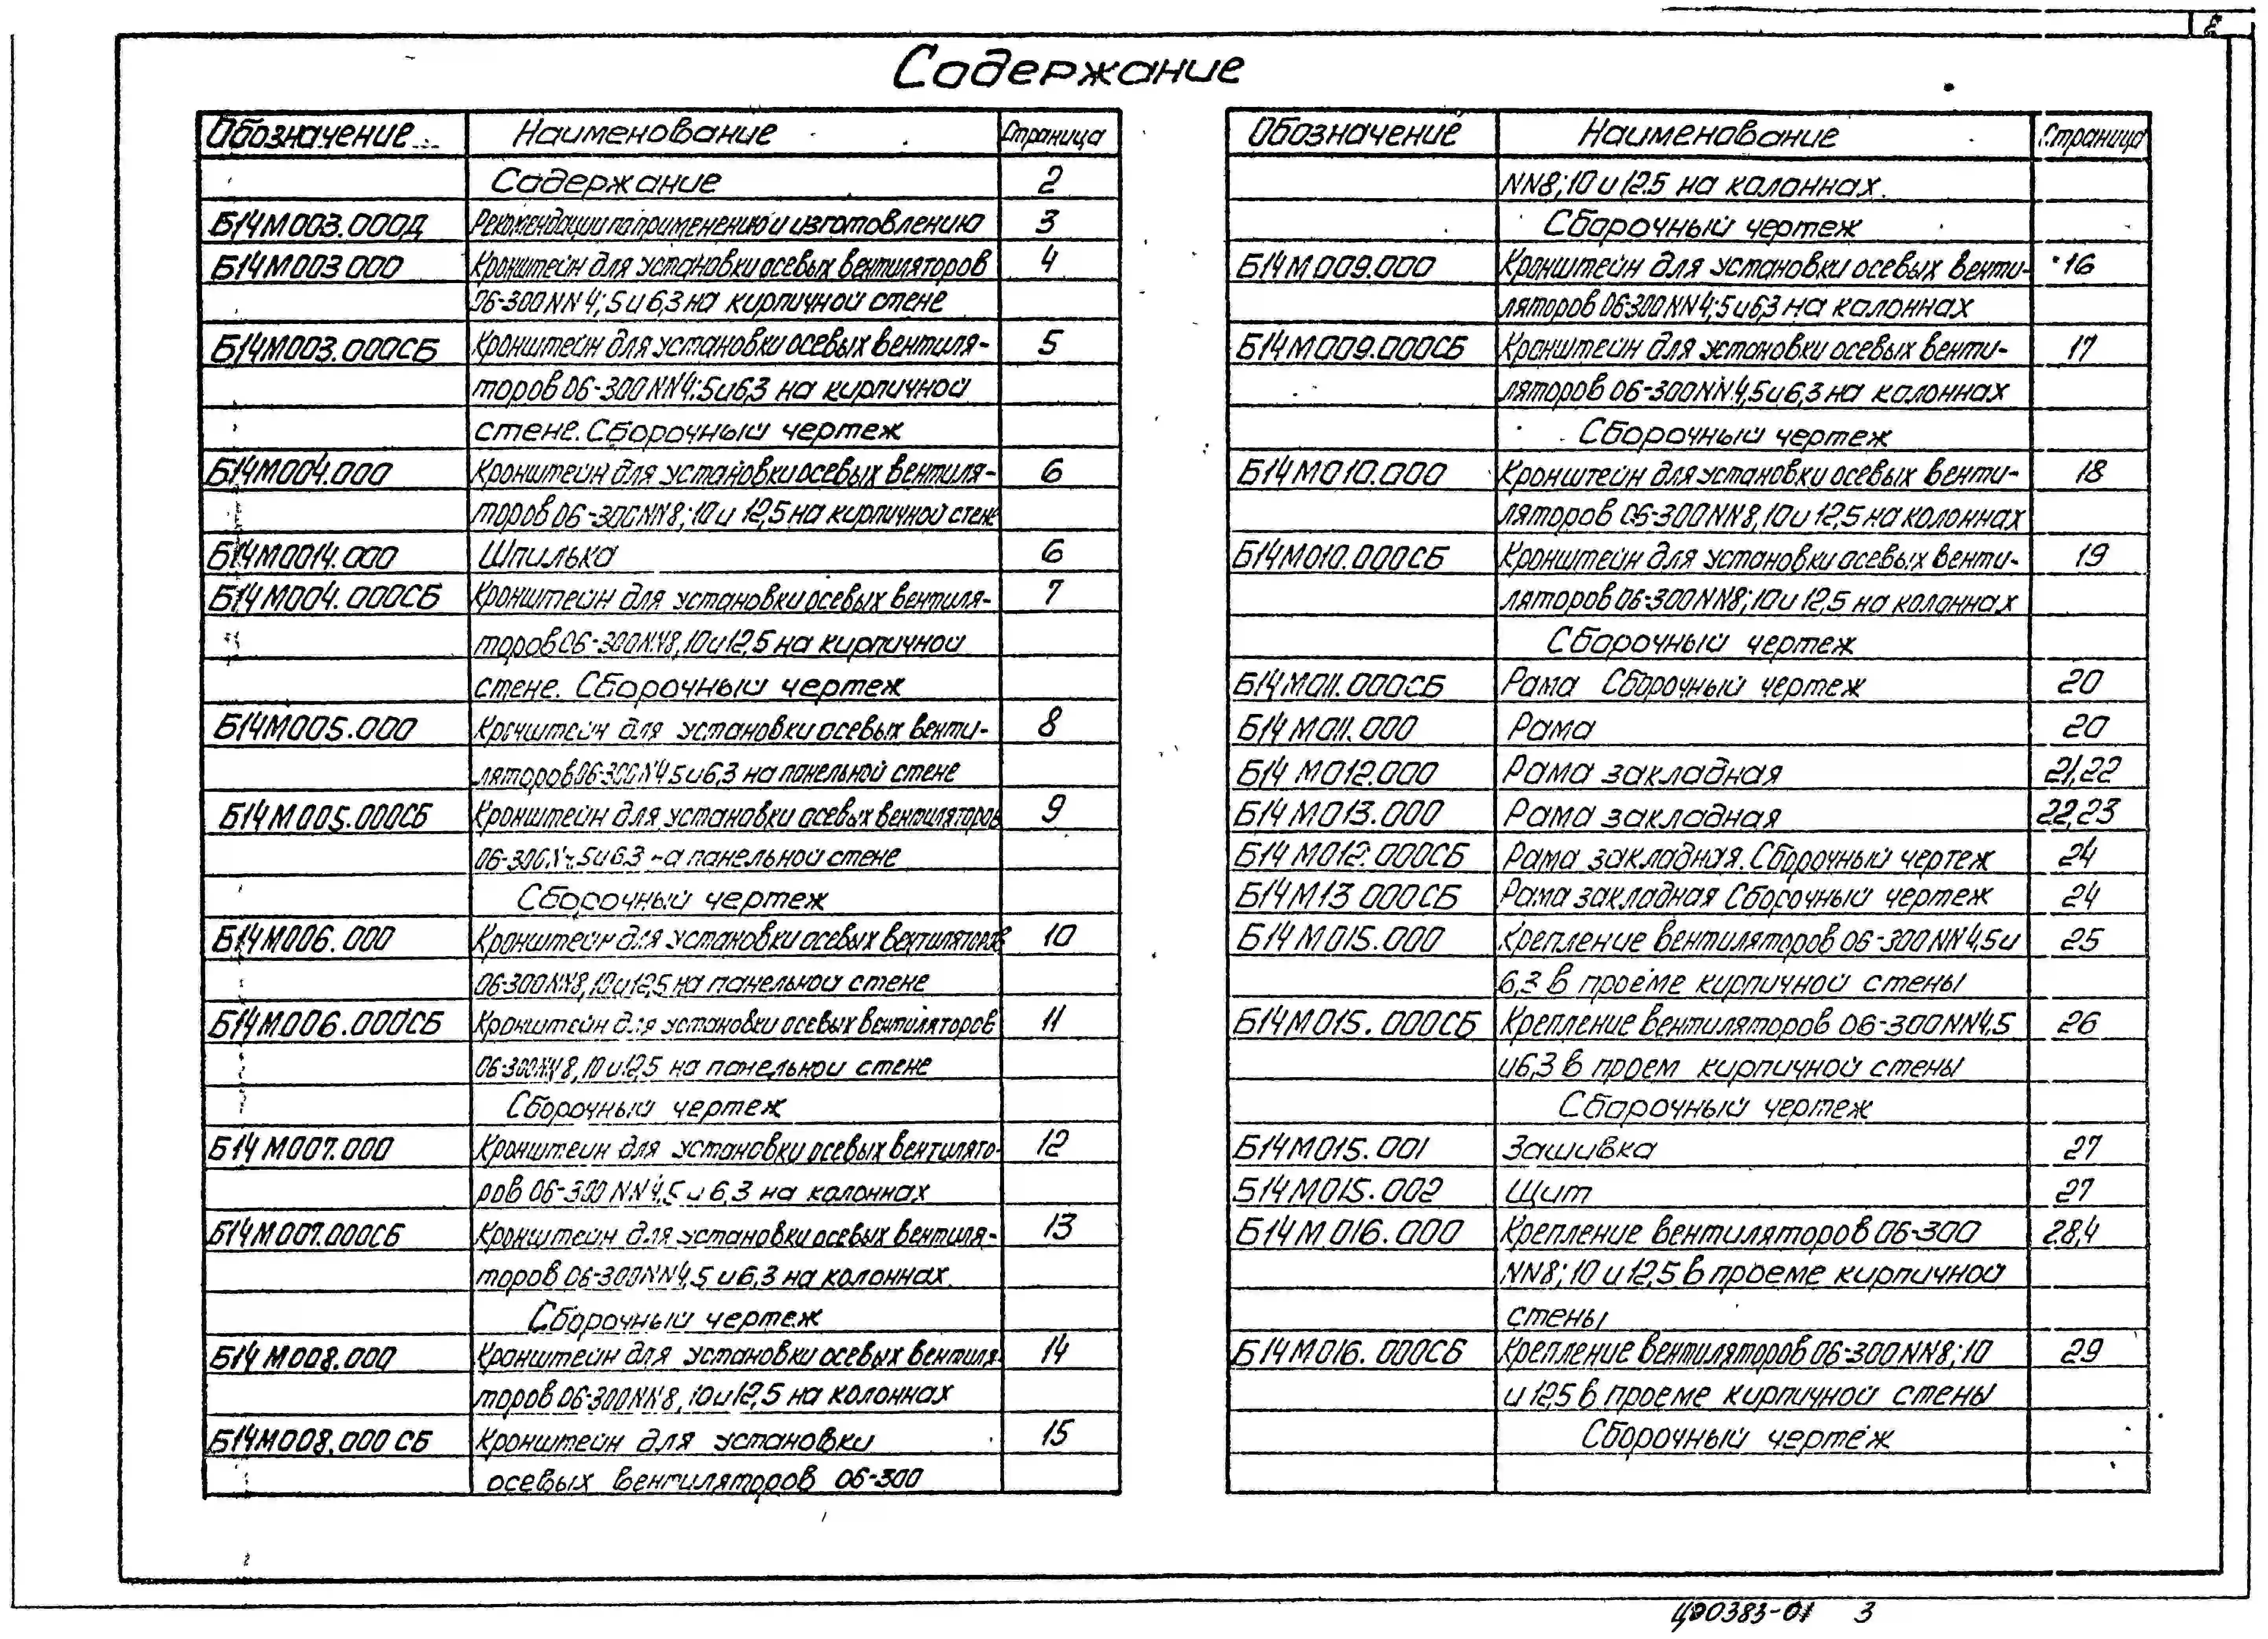 2
Содержание
Обозначение Наименование Страница
Содержание 2
Б14М003.000Д Рекомендации по применению и изготовлению 3
Б14М003.000 Кронштейн для установки осевых вентиляторов 4
06-300NN4;5и6,3 на кирпичной стене
Б14М003.000СБ Кронштейн для установки осевых вентиля- 5
торов 06-300NN4;5и6,3 на кирпичной
стене. Сборочный чертеж
Б14М004.000 Кронштейн для установки осевых вентиля- 6
торов 06-300NN8;10и 12,5 на кирпичной стене
Б14М0014.000 Шпилька 6
Б14М004.000СБ Кронштейн для установки осевых вентиля- 7
торов 06-300NN8,10и12,5 на кирпичной
стене. Сборочный чертеж
Б14М005.000 Кронштейн для установки осевых венти- 8
ляторов 06-300N4 5и6,3 на панельной стене
Б14М005.000СБ Кронштейн для установки осевых вентиляторов 9
5и6.3 на панельной стене
Сборочный чертеж
Б14М006.000 Кронштейн для установки осевых вентиляторов 10
06-300NN8,10и12,5 на панельной стене
Б14М006.000СБ Кронштейн для установки осевых вентиляторов 11
06-300NN8,10и12,5 на панельной стене
Сборочный чертеж
Б14М007.000 Кронштейн для установки осевых вентилято- 12
ров 06-300NN4,5 и 6,3 на колоннах
Б14М007.000СБ Кронштейн для установки осевых вентиля- 13
торов 06-300NN4,5 и6,3 на колоннах.
Сборочный чертеж
Б14М008.000 Кронштейн для установки осевых вентиля- 14
торов 06-300NN8,10и12,5 на колоннах
Б14М008.000 СБ Кронштейн для установки 15
осевых вентиляторов 06-300
Обозначение Наименование Страница
NN8;10и12.5 на колоннах.
Сборочный чертеж
Б14М009.000 Кронштейн для установки осевых венти- 16
ляторов 06-300NN4;5и6,3 на колоннах
Б14М009.000СБ Кронштейн для установки осевых венти- 17
ляторов 06-300NN4,5и6,3 на колоннах
Сборочный чертеж
Б14М010.000 Кронштейн для установки осевых венти- 18
ляторов 06-300NN8,10и12,5 на колоннах
Б14М010.000СБ Кронштейн для установки осевых венти- 19
ляторов 06-300NN8;10и12,5 на колоннах
Сборочный чертеж
Б14М011.000СБ Рама Сборочный чертеж 20
Б14М011.000 Рама 20
Б14М012.000 Рама закладная 21,22
Б14М013.000 Рама закладная 22,23
Б14М012.000СБ Рама закладная. Сборочный чертеж 24
Б14М13 000СБ Рама закладная Сборочный чертеж 24
Б14М015.000 Крепление вентиляторов 06-300NN4,5и 25
6,3 в проеме кирпичной стены
Б14М015.000СБ Крепление вентиляторов 06-300NN4.5 26
и6,3 в проем кирпичной стены
Сборочный чертеж
Б14М015.001 Зашивка 27
Б14М015.002 Щит 27
Б14М016.000 Крепление вентиляторов 06-300 28,4
NN8;10 и12,5 в проеме кирпичной
стены
Б14М016.000СБ Крепление вентиляторов 06-300NN8;10 29
и 12,5 в проеме кирпичной стены
Сборочный чертеж
Ц00383-01 3